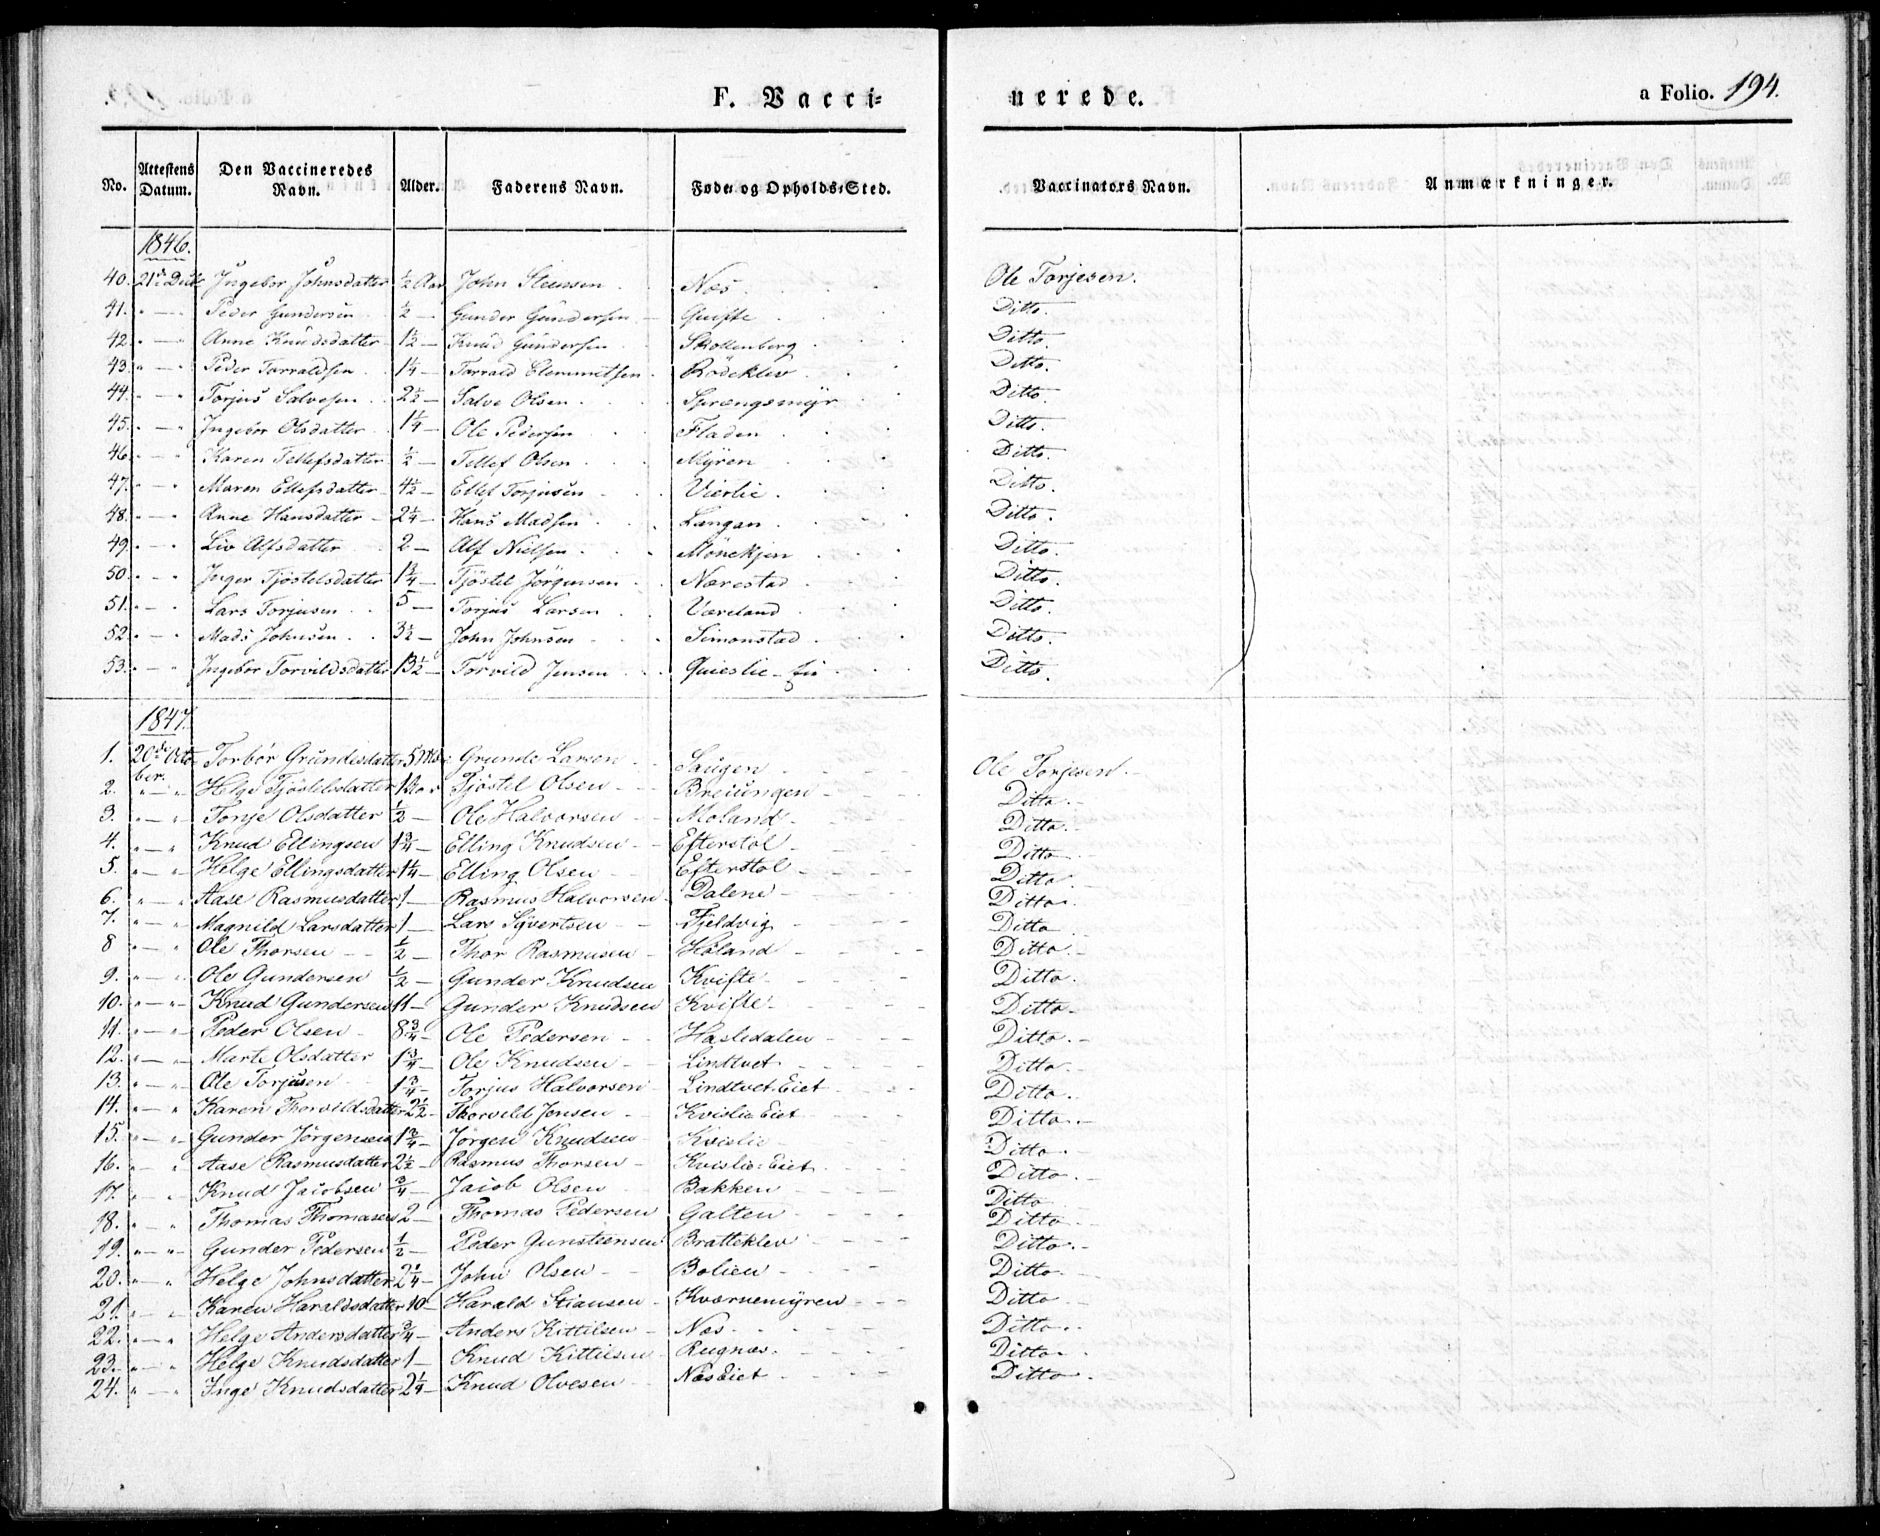 F. Vacci-
nerede.
a Folio. 194.
No. Attestens Datum. Den Vaccineredes Navn. Alder. Faderens Navn. Føde- og Opholds-Sted. Vaccinators Navn. Anmærkninger.
1846.
40. 21de Decbr Ingebor Johnsdatter ½ Aar John Steensen Næs Ole Torjesen.
41. " — " Peder Gundersen ½ — Gunder Gundersen Quifte Ditto.
42. " — " Anne Knudsdatter 1½ — Knud Gundersen Skottenberg Ditto.
43. " — " Peder Tarraldsen 1¼ — Tarrald Clemmetsen Rödeklev Ditto.
44. " — " Torjus Salvesen 2½ — Salve Olsen Sprængsmyr Ditto.
45. " — " Ingebor Olsdatter 1¼ — Ole Pedersen Fladen Ditto.
46. " — " Karen Tellefsdatter ½ — Tellef Olsen Myren Ditto.
47. " — " Maren Ellefsdatter 4½ — Ellef Torjusen Vierlie Ditto.
48. " — " Anne Hansdatter 2¼ — Hans Madsen Langan Ditto.
49. " — " Liv Alfsdatter 2 — Alf Nielsen Mönekjen Ditto.
50. " — " Inger Tjöstelsdatter 1¾ — Tjöstel Jörgensen Nærestad Ditto.
51. " — " Lars Torjusen 5 — Torjus Larsen Væreland Ditto.
52. " — " Mads Johnsen 3½ — John Johnsen Simonstad Ditto.
53. " — " Ingebor Torvildsdatter 13½ — Torvild Jensen Quieslie Ditto.
1847.
1. 20de October. Torbør Grundesdatter 5 Mdr Grunde Larsen Saugen Ole Torjesen.
2. " — " Helge Tjöstelsdatter 1 Aar Tjöstel Olsen Breiungen Ditto.
3. " — " Tonje Olsdatter ½ — Ole Halvorsen Moland Ditto.
4. " — " Knud Ellingsen 1¾ — Elling Knudsen Efterstøl Ditto.
5. " — " Helge Ellingsdatter 1¼ — Elling Olsen Efterstøl Ditto.
6. " — " Aase Rasmusdatter 1 — Rasmus Halvorsen Dalene Ditto.
7. " — " Magnild Larsdatter 1 — Lars Syvertsen Fjeldvig Ditto
8 " — " Ole Thorsen ½ — Thor Rasmusen Høland Ditto.
9. " — " Ole Gundersen ½ — Gunder Knudsen Kvifte Ditto.
10. " — " Knud Gundersen 11 — Gunder Knudsen Kvifte Ditto.
11. " — " Peder Olsen 8¾ — Ole Pedersen Hasledalen Ditto.
12. " — " Marte Olsdatter 1¾ — Ole Knudsen Lindtvet Ditto.
13. " — " Ole Torjusen 1¾ — Torjus Halvorsen Lindtvet Eiet Ditto.
14. " — " Karen Thorvildsdatter 2½ — Thorvild Jensen Kvislie Eiet Ditto.
15. " — " Gunder Jörgensen 1¾ — Jörgen Knudsen Kvislie Ditto.
16. " — " Aase Rasmusdatter 2½ — Rasmus Thorsen Kvislie Eiet Ditto.
17. " — " Knud Jacobsen ¾ — Jacob Olsen Bakken Ditto
18. " — " Thomas Thomasen 2 — Thomas Pedersen Galten Ditto
19. " — " Gunder Pedersen ½ — Peder Gunsteensen Bratteklev Ditto.
20. " — " Helge Johnsdatter 2¼ — John Olsen Bolien Ditto.
21. " — " Karen Haraldsdatter 10 — Harald Stiansen Kværnemyren Ditto
22. " — " Helge Andersdatter ¾ — Anders Kittilsen Næs Ditto.
23. " — " Helge Knudsdatter 1 — Knud Kittilsen Rugnæs Ditto.
24. " — " Inge Knudsdatter 2¼ — Knud Olvesen Næs Eiet Ditto.